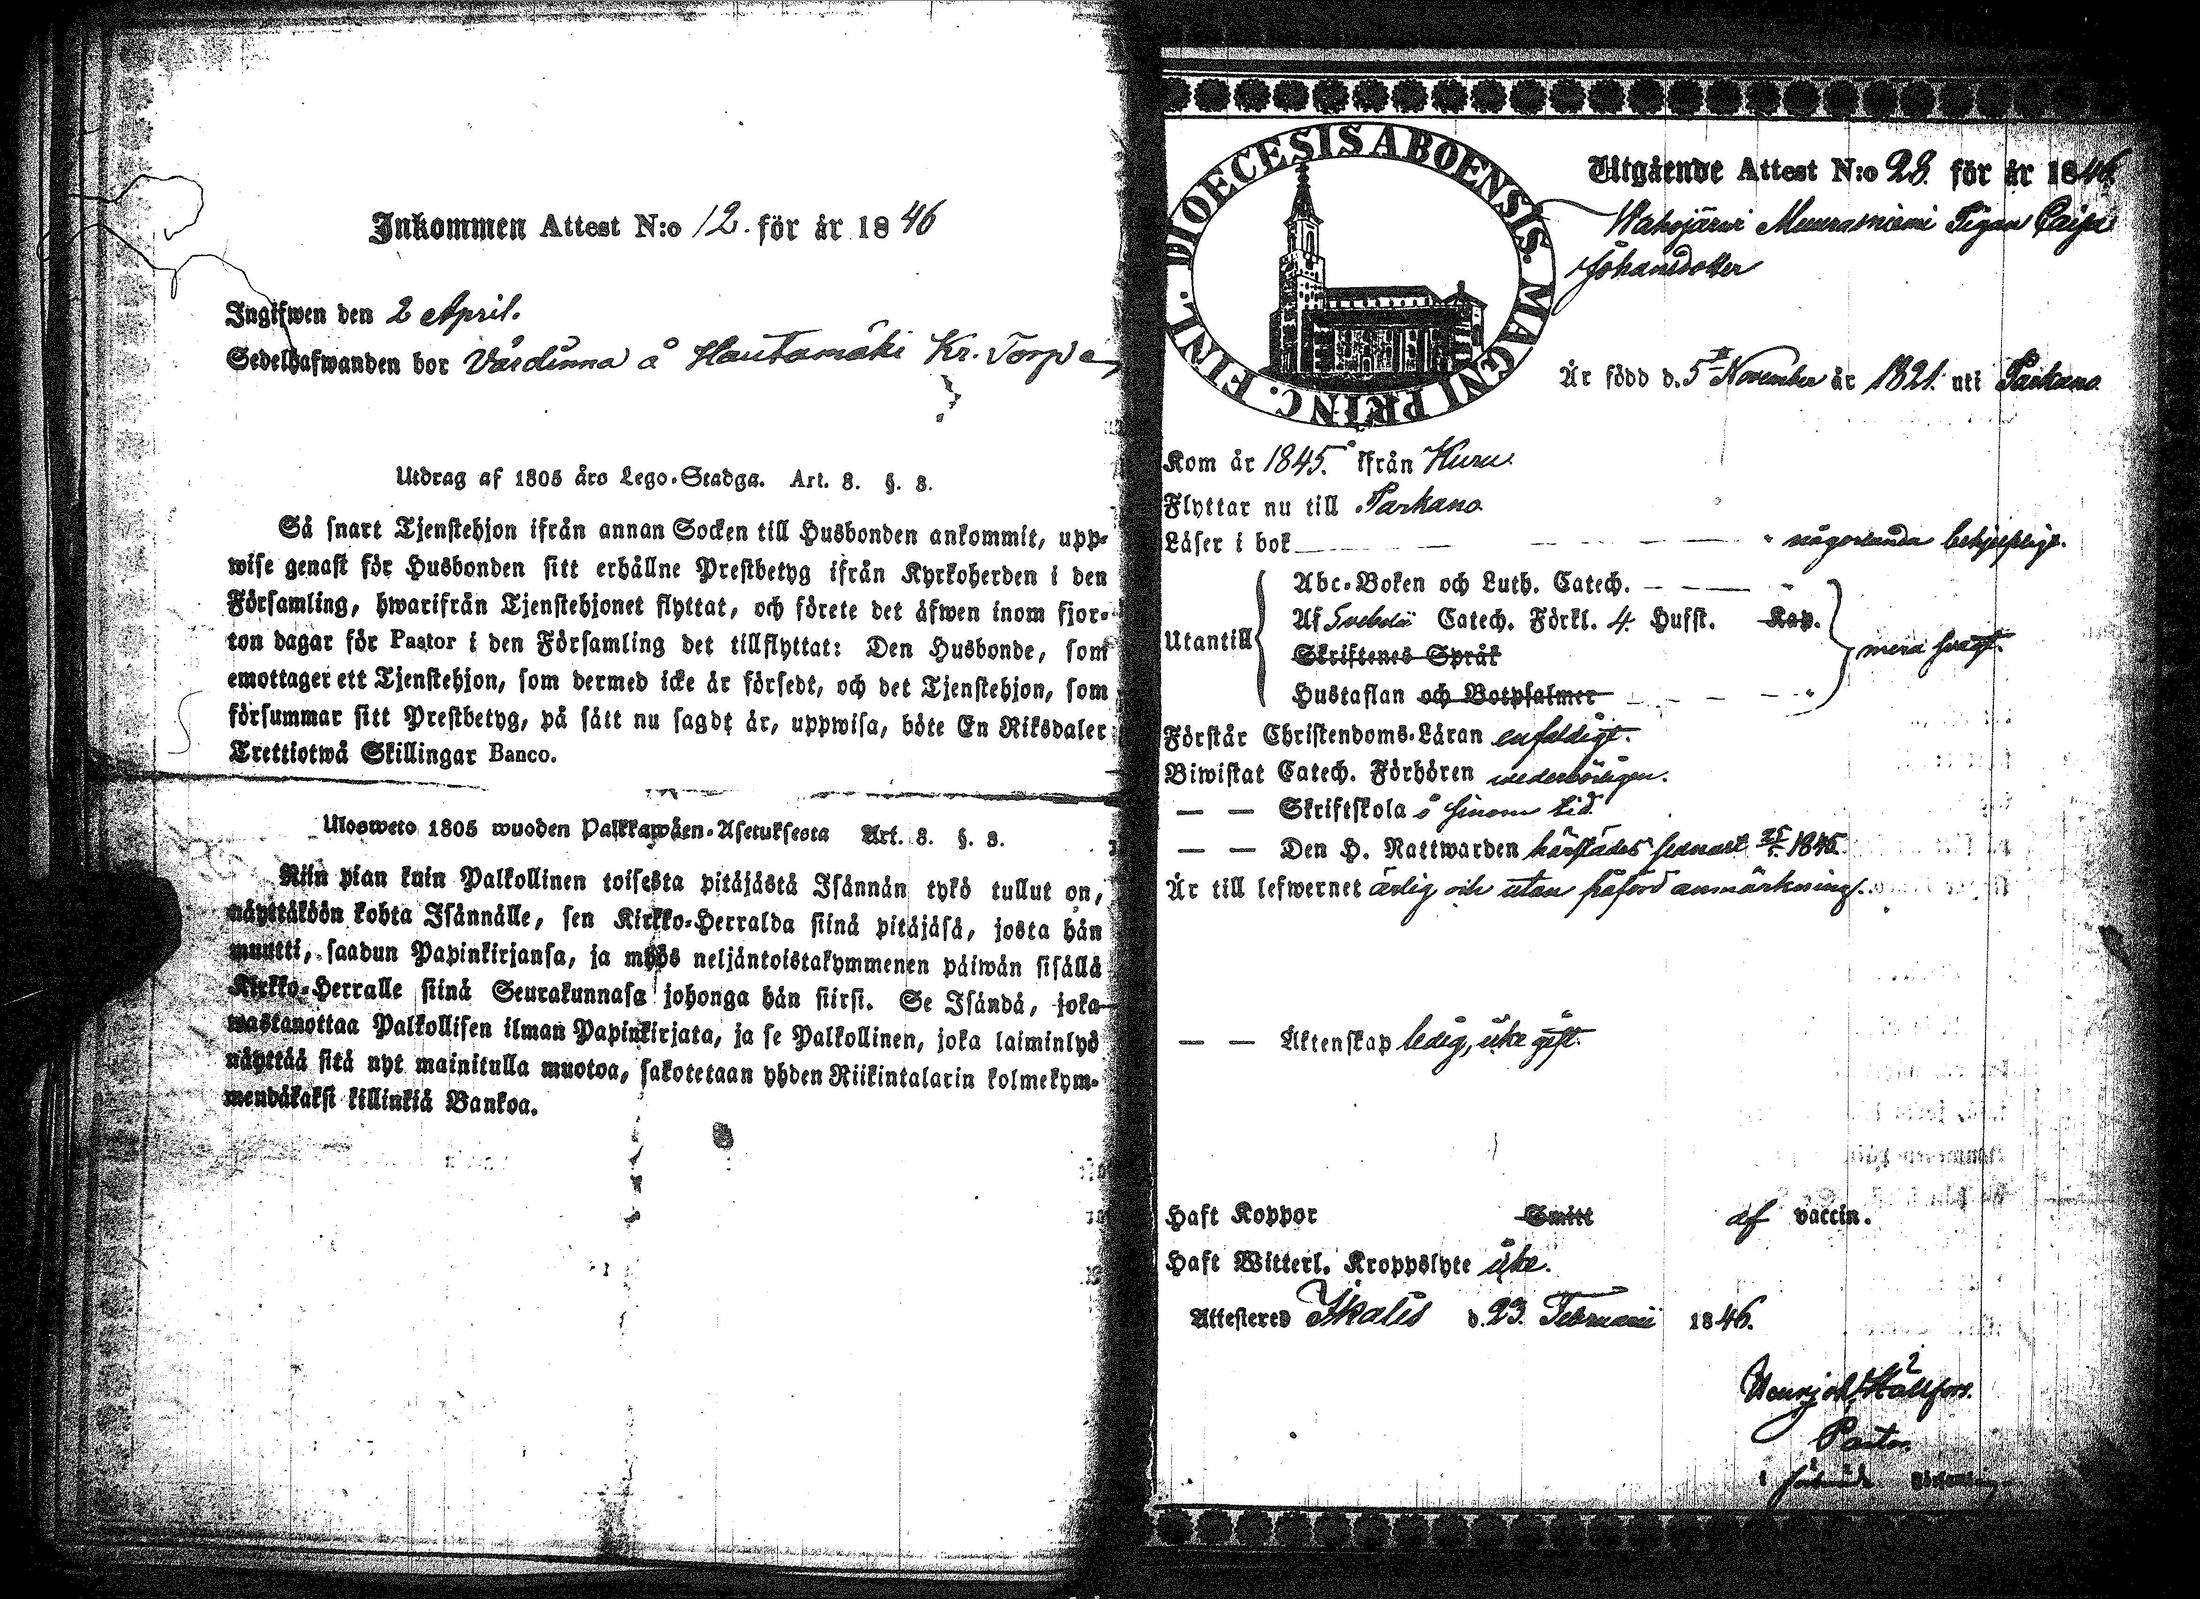 Inkommen Attest N:o 12. för år 1846
Ingifwen den 2 April.
Sedelhafwanden bor Värdinna å Hautamäki Kr. Torp
Utdrag af 1805 års Lego-Stadga. Art. 8. §. 3.
Så snart Tjenstehjon ifrån annan Socken till Husbonden ankommit, upp-
wise genast för Husbonden sitt erhållne Prestbetyg ifrån Kyrkoherden i den
Församling, hwarifrån Tjenstehjonet flyttat, och förete det äfwen inom fjor-
ton dagar för Pastor i den Församling det tillflyttat: Den Husbonde, som
emottager ett Tjenstehjon, som dermed icke är försedt, och det Tjenstehjon, som
försummar sitt Prestbetyg, på sätt nu sagdt är, uppwisa, böte En Riksdaler
Trettiotwå Skillingar Banco.
Ulosweto 1805 wuoden Palkkawäen-Asetuksesta Art. 8. §. 3.
Niin pian kuin Palkollinen toisesta pitäjästä Isännän tykö tullut on,
näyttäköön kohta Isännälle, sen Kirkko-Herralda siinä pitäjäsä, josta hän
muutti, saadun Papinkirjansa, ja myös neljäntoistakymmenen päiwän sisällä
Kirkko-Herralle siinä Seurakunnasa johonga hän siirsi. Se Isändä, joka
wastanottaa Palkollisen ilman Papinkirjata, ja se Palkollinen, joka laiminlyö
näyttää sitä nyt mainitulla muotoa, sakotetaan yhden Riikintalarin kolmekym-
mendäkaksi killinkiä Bankoa.
DIOECESIS ABOENSIS. MAGNI PRINC. FINL.
Utgående Attest N:o 28. för år 1846.
Wahojärvi Muurasniemi Pigan Caisa
Johansdotter
Är född d. 5 November år 1821. uti Parkano.
Kom år 1845. ifrån Kuru.
Flyttar nu till Parkano
Läser i bok någorlunda behjelpligt.
Abc-Boken och Luth. Catech.
Utantill Af Svebelii Catech. Förkl. 4. Hufst. Kap. mera svagt.
Skriftenes Språk
Hustaflan och Botpsalmer
Förstår Christendoms-Läran enfaldigt.
Biwistat Catech. Förhören wederbörligen.
— — Skriftskola i sinom tid.
— — Den H. Nattwarden härstädes senast 25/1. 1846.
Är till lefwernet ärlig och utan känd anmärkning.
— — Äktenskap ledig, icke gift.
Haft Koppor Smitt af vaccin.
Haft Witterl. Kroppslyte icke.
Attesteres Ikalis d. 23. Februarii 1846.
Henrj oh. Hallfors.
Pastor.